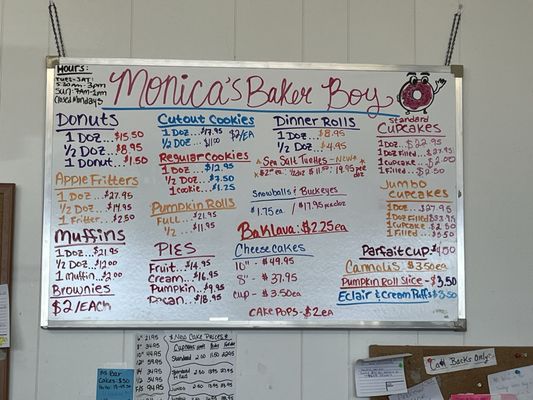 Hours:
Tues-Sat:
5:30am-3pm
Sun: 7am-1pm
Closed Mondays
Monica's Baker Boy
Donuts
1 Doz...$15.50
1/2 Doz...$8.95
1 Donut...$1.50
Apple Fritters
1 Doz...$27.95
1/2 Doz...$14.95
1 Fritter...$2.50
Muffins
1 Doz...$21.95
1/2 Doz...$12.00
1 Muffin...$2.00
Brownies
$2/Each
Cutout Cookies
1 Doz...$17.95
$2/EA
1/2 Doz...$11.00
Regular Cookies
1 Doz...$12.95
1/2 Doz...$7.50
1 Cookie...$1.25
Pumpkin Rolls
Full...$21.95
1/2...$11.95
Pies
Fruit...$14.95
Cream...$16.95
Pumpkin...$9.95
Pecan...$18.95
Dinner Rolls
1 Doz...$8.95
1/2 Doz...$4.95
Sea Salt Turtles - New
Snowballs & Buckeyes
$1.75 ea / $19.95 per doz
Baklava: $2.25 ea
Cheesecakes
10"- $49.95
8"- $37.95
cup- $3.50 ea
Cake Pops- $2 ea
Standard
Cupcakes
1 Doz...$22.95
1 Doz Filled...$27.95
1 Cupcake...$2.00
1 Filled...$2.50
Jumbo
Cupcakes
1 Doz...$27.95
1 Doz Filled
1 Cupcake...$2.50
1 Filled...$3.50
Parfait Cup- $4.00
Cannolis $3.50 ea
Pumpkin Roll Slice- $3.50
Eclair & Cream Puffs $3.50
New Cake Prices
Cupcake
Standard
Jumbo
Bar
Cakes: $50
Cash Backs Only